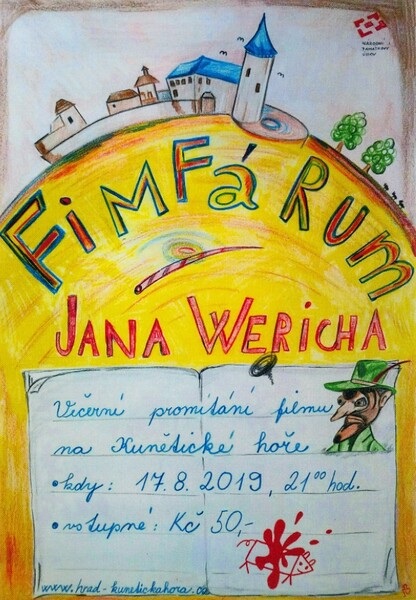 NÁRODNÍ
PAMÁTKOVÝ
ÚSTAV
FiMFáRUM
JANA WERICHA
Večerní promítání filmu
na Kunětické hoře
•kdy: 17.8.2019, 21⁰⁰ hod.
•vstupné: Kč 50,-
www.hrad-kunetickahora.cz